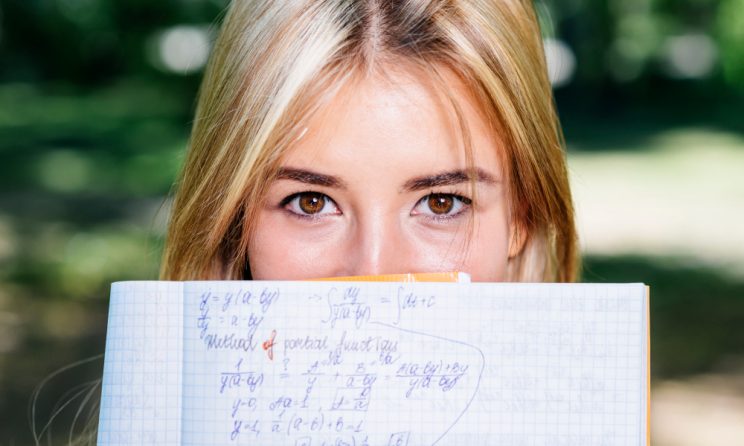 y = y(a-by) → ∫ dy/y(a-by) = ∫dt+C
dy/y = a-by
Method of partial functions
1/y(a-by) ?= A/y + B/a-by = A(a-by)+By/y(a-by)
y=0, Aa=1, A=1/a
y=1, 1/a (a-b)+B=1